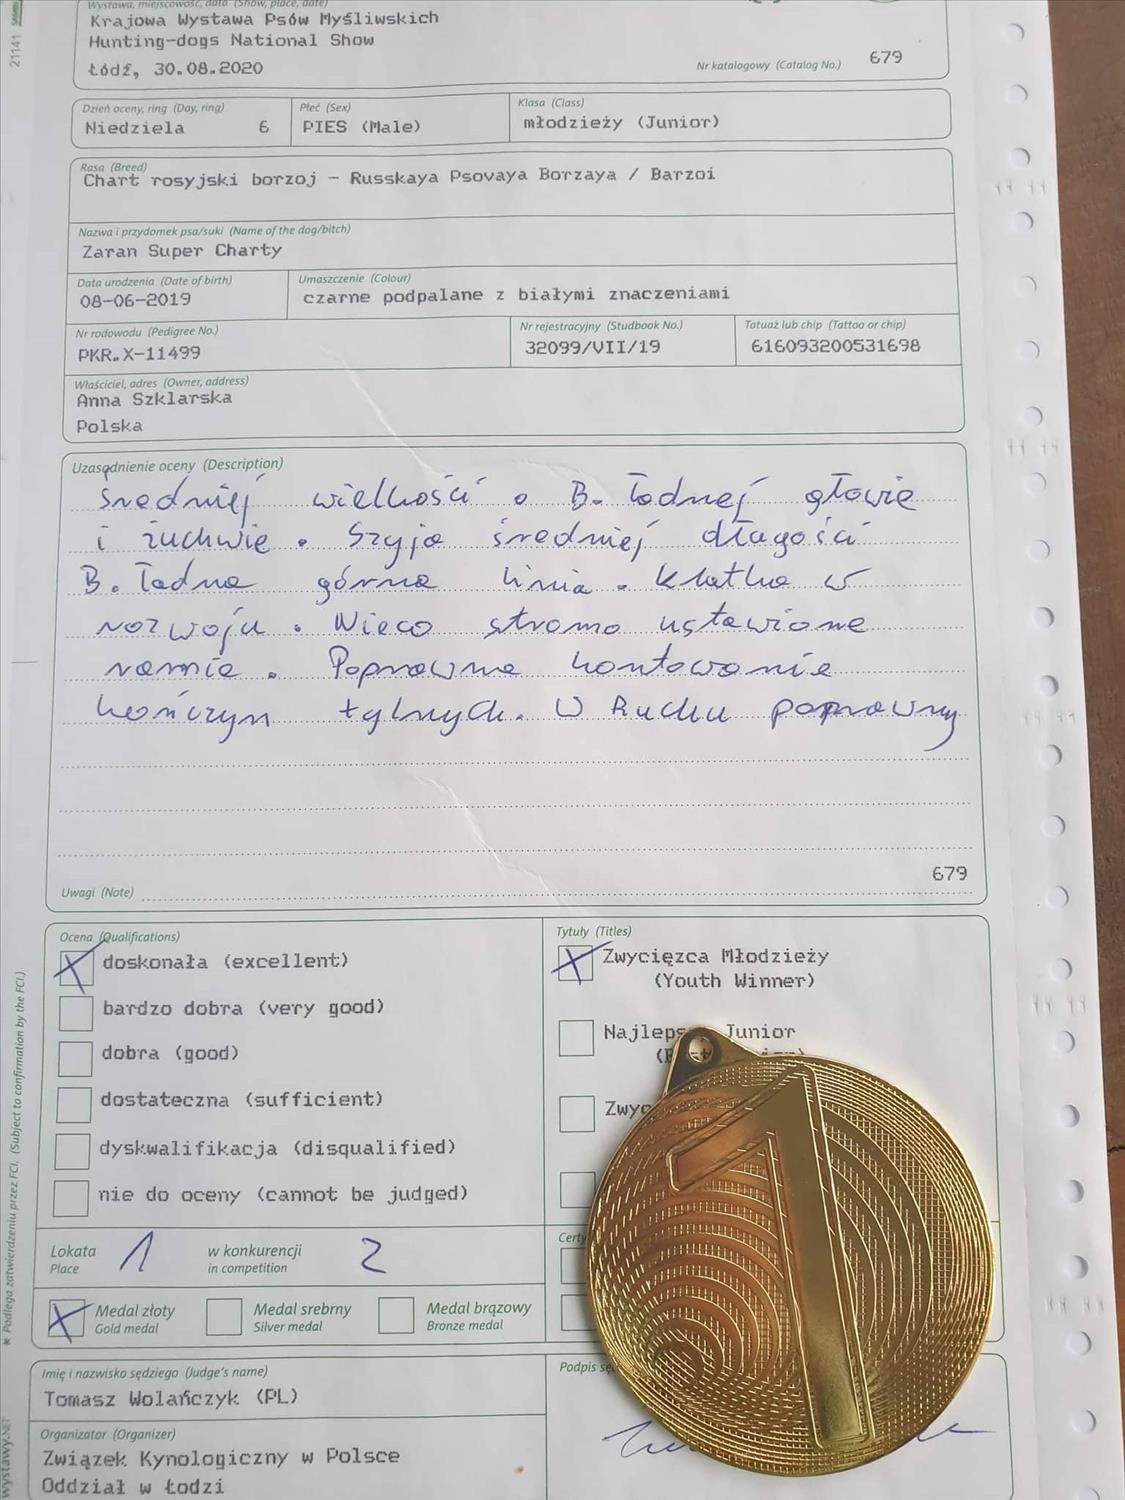 Wystawa, miejscowość, data (Show, place, date)
Krajowa Wystawa Psów Myśliwskich
Hunting-dogs National Show
Łódź, 30.08.2020
Nr katalogowy (Catalog No.) 679
21141
Dzień oceny, ring (Day, ring)
Niedziela 6
Płeć (Sex)
PIES (Male)
Klasa (Class)
młodzieży (Junior)
Rasa (Breed)
Chart rosyjski borzoj - Russkaya Psovaya Borzaya / Barzoi
Nazwa i przydomek psa/suki (Name of the dog/bitch)
Zaran Super Charty
Data urodzenia (Date of birth)
08-06-2019
Umaszczenie (Colour)
czarne podpalane z białymi znaczeniami
Nr rodowodu (Pedigree No.)
PKR.X-11499
Nr rejestracyjny (Studbook No.)
32099/VII/19
Tatuaż lub chip (Tattoo or chip)
616093200531698
Właściciel, adres (Owner, address)
Anna Szklarska
Polska
Uzasadnienie oceny (Description)
średniej wielkości o B. ładnej głowie
i żuchwie. Szyja średniej długości
B. ładna górna linia. Klatka w
rozwoju. Nieco stromo ustawione
ramie. Poprawne kontowanie
kończyn tylnych. W Ruchu poprawny
679
Uwagi (Note)
Ocena (Qualifications)
doskonała (excellent)
bardzo dobra (very good)
dobra (good)
dostateczna (sufficient)
dyskwalifikacja (disqualified)
nie do oceny (cannot be judged)
Tytuły (Titles)
Zwycięzca Młodzieży
(Youth Winner)
Junior
Lokata 1 w konkurencji 2
Place in competition
Medal złoty
Gold medal
Medal srebrny
Silver medal
Medal brązowy
Bronze medal
1
Imię i nazwisko sędziego (Judge's name)
Tomasz Wolańczyk (PL)
Podpis
Organizator (Organizer)
Związek Kynologiczny w Polsce
Oddział w Łodzi
* Podlega zatwierdzeniu przez FCI. (Subject to confirmation by the FCI.)
wystawy.NET